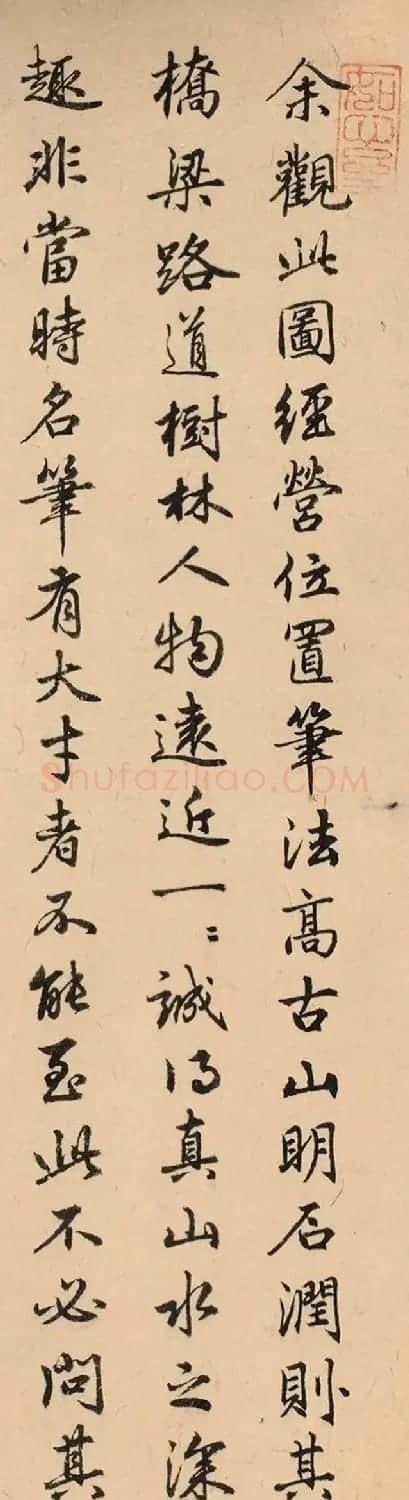 余觀此圖經營位置筆法高古山明石潤則其
橋梁路道樹林人物遠近一〻誠得真山水之深
趣非當時名筆有大才者不能至此不必問其
shufaziliao.COM